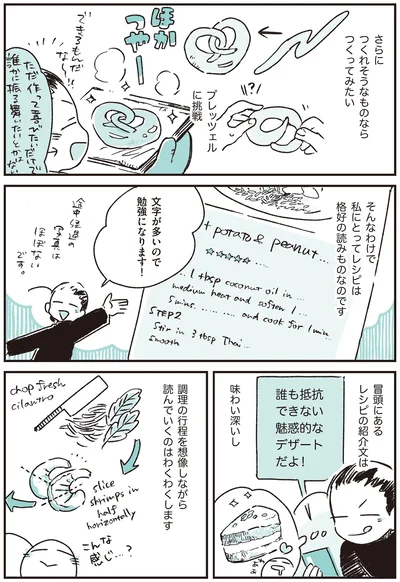 さらに
つくれそうなものなら
つくってみたい
!?
プレッツェル
に挑戦
ほかつやー
できるもんだ
なー!!
ただ作って喜びたいだけで
誰かに振る舞いたいとかはない
そんなわけで
私にとってレシピは
格好の読みものなのです
+ potato & peanut...
☆☆☆☆☆...
...1 tbsp coconut oil in...
medium heat and soften 1...
5mins......... and cook for 1min
STEP2
Stir in 3 tbsp Thai...
smooth
文字が多いので
勉強になります!
途中経過の
写真は
ほぼない
です。
冒頭にある
レシピの紹介文は
誰も抵抗
できない
魅惑的な
デザート
だよ!
味わい深いし
調理の行程を想像しながら
読んでいくのはわくわくします
chop fresh
cilantro
slice
shrimps in
half
horizontally
こんな
感じ…?